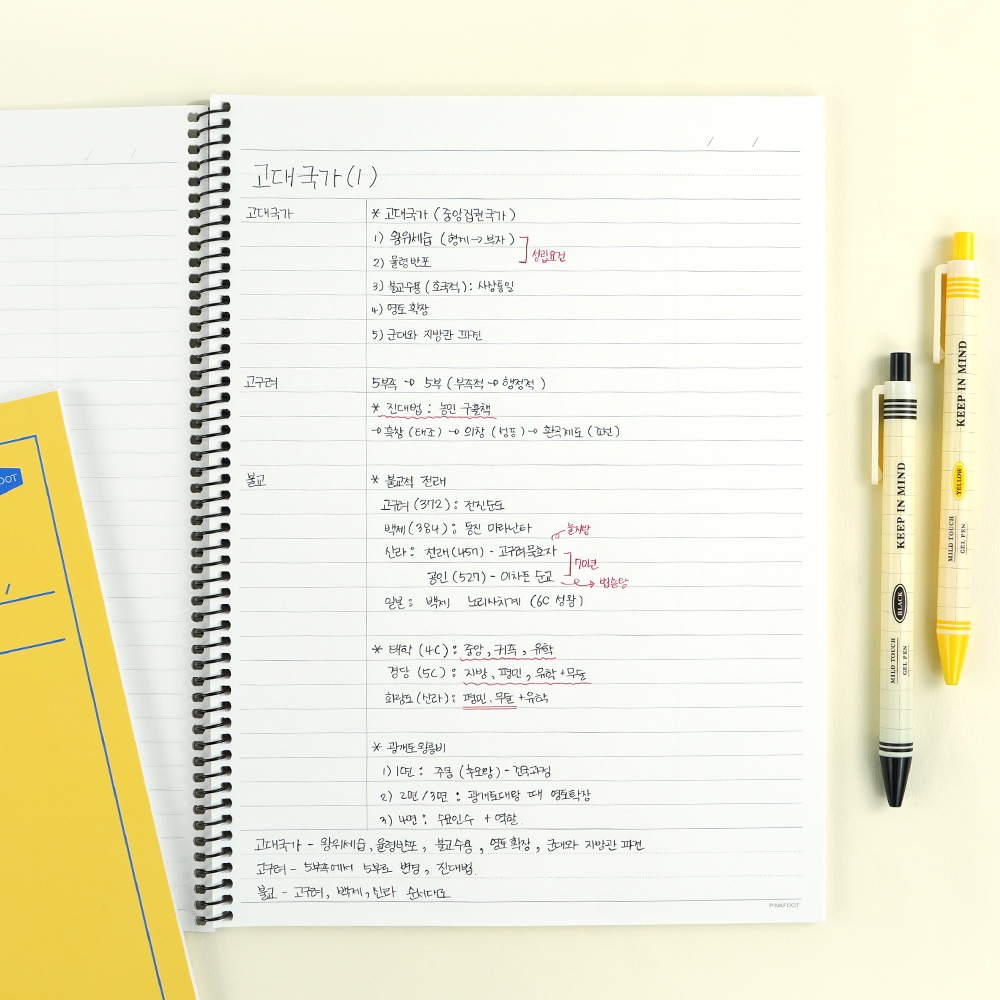 / /
/ /
고대국가(1)
고대국가
* 고대국가 (중앙집권국가)
1) 왕위세습 (형제→부자)
2) 율령반포
성립요건
3) 불교수용 (호국적) : 사상통일
4) 영토확장
5) 군대와 지방관 파견
고구려
5부족 → 5부 (부족적 → 행정적)
* 진대법 : 농민 구휼책
→ 흑창 (태조) → 의창 (성종) → 환곡제도 (조선)
불교
* 불교적 전래
고구려 (372) : 전진순도
백제 (384) : 동진 마라난타
눌지왕
신라 : 전래 (457) - 고구려 묵호자
70년
공인 (527) - 이차돈 순교
→ 법흥왕
일본 : 백제 노리사치계 (6C 성왕)
* 태학 (4C) : 중앙, 귀족, 유학
경당 (5C) : 지방, 평민, 유학+무술
화랑도 (신라) : 평민, 무술 +유학
* 광개토왕릉비
1) 1면 : 주몽 (추모왕) - 건국과정
2) 2면/3면 : 광개토대왕 때 영토확장
3) 4면 : 수묘인수 + 역할.
고대국가 - 왕위세습, 율령반포, 불교수용, 영토확장, 군대와 지방관 파견
고구려 - 5부족에서 5부로 변경, 진대법.
불교 - 고구려, 백제, 신라 순서대로
PINKFOOT
OOT
/
KEEP IN MIND
BLACK
MILD TOUCH
GEL PEN
KEEP IN MIND
YELLOW
MILD TOUCH
GEL PEN